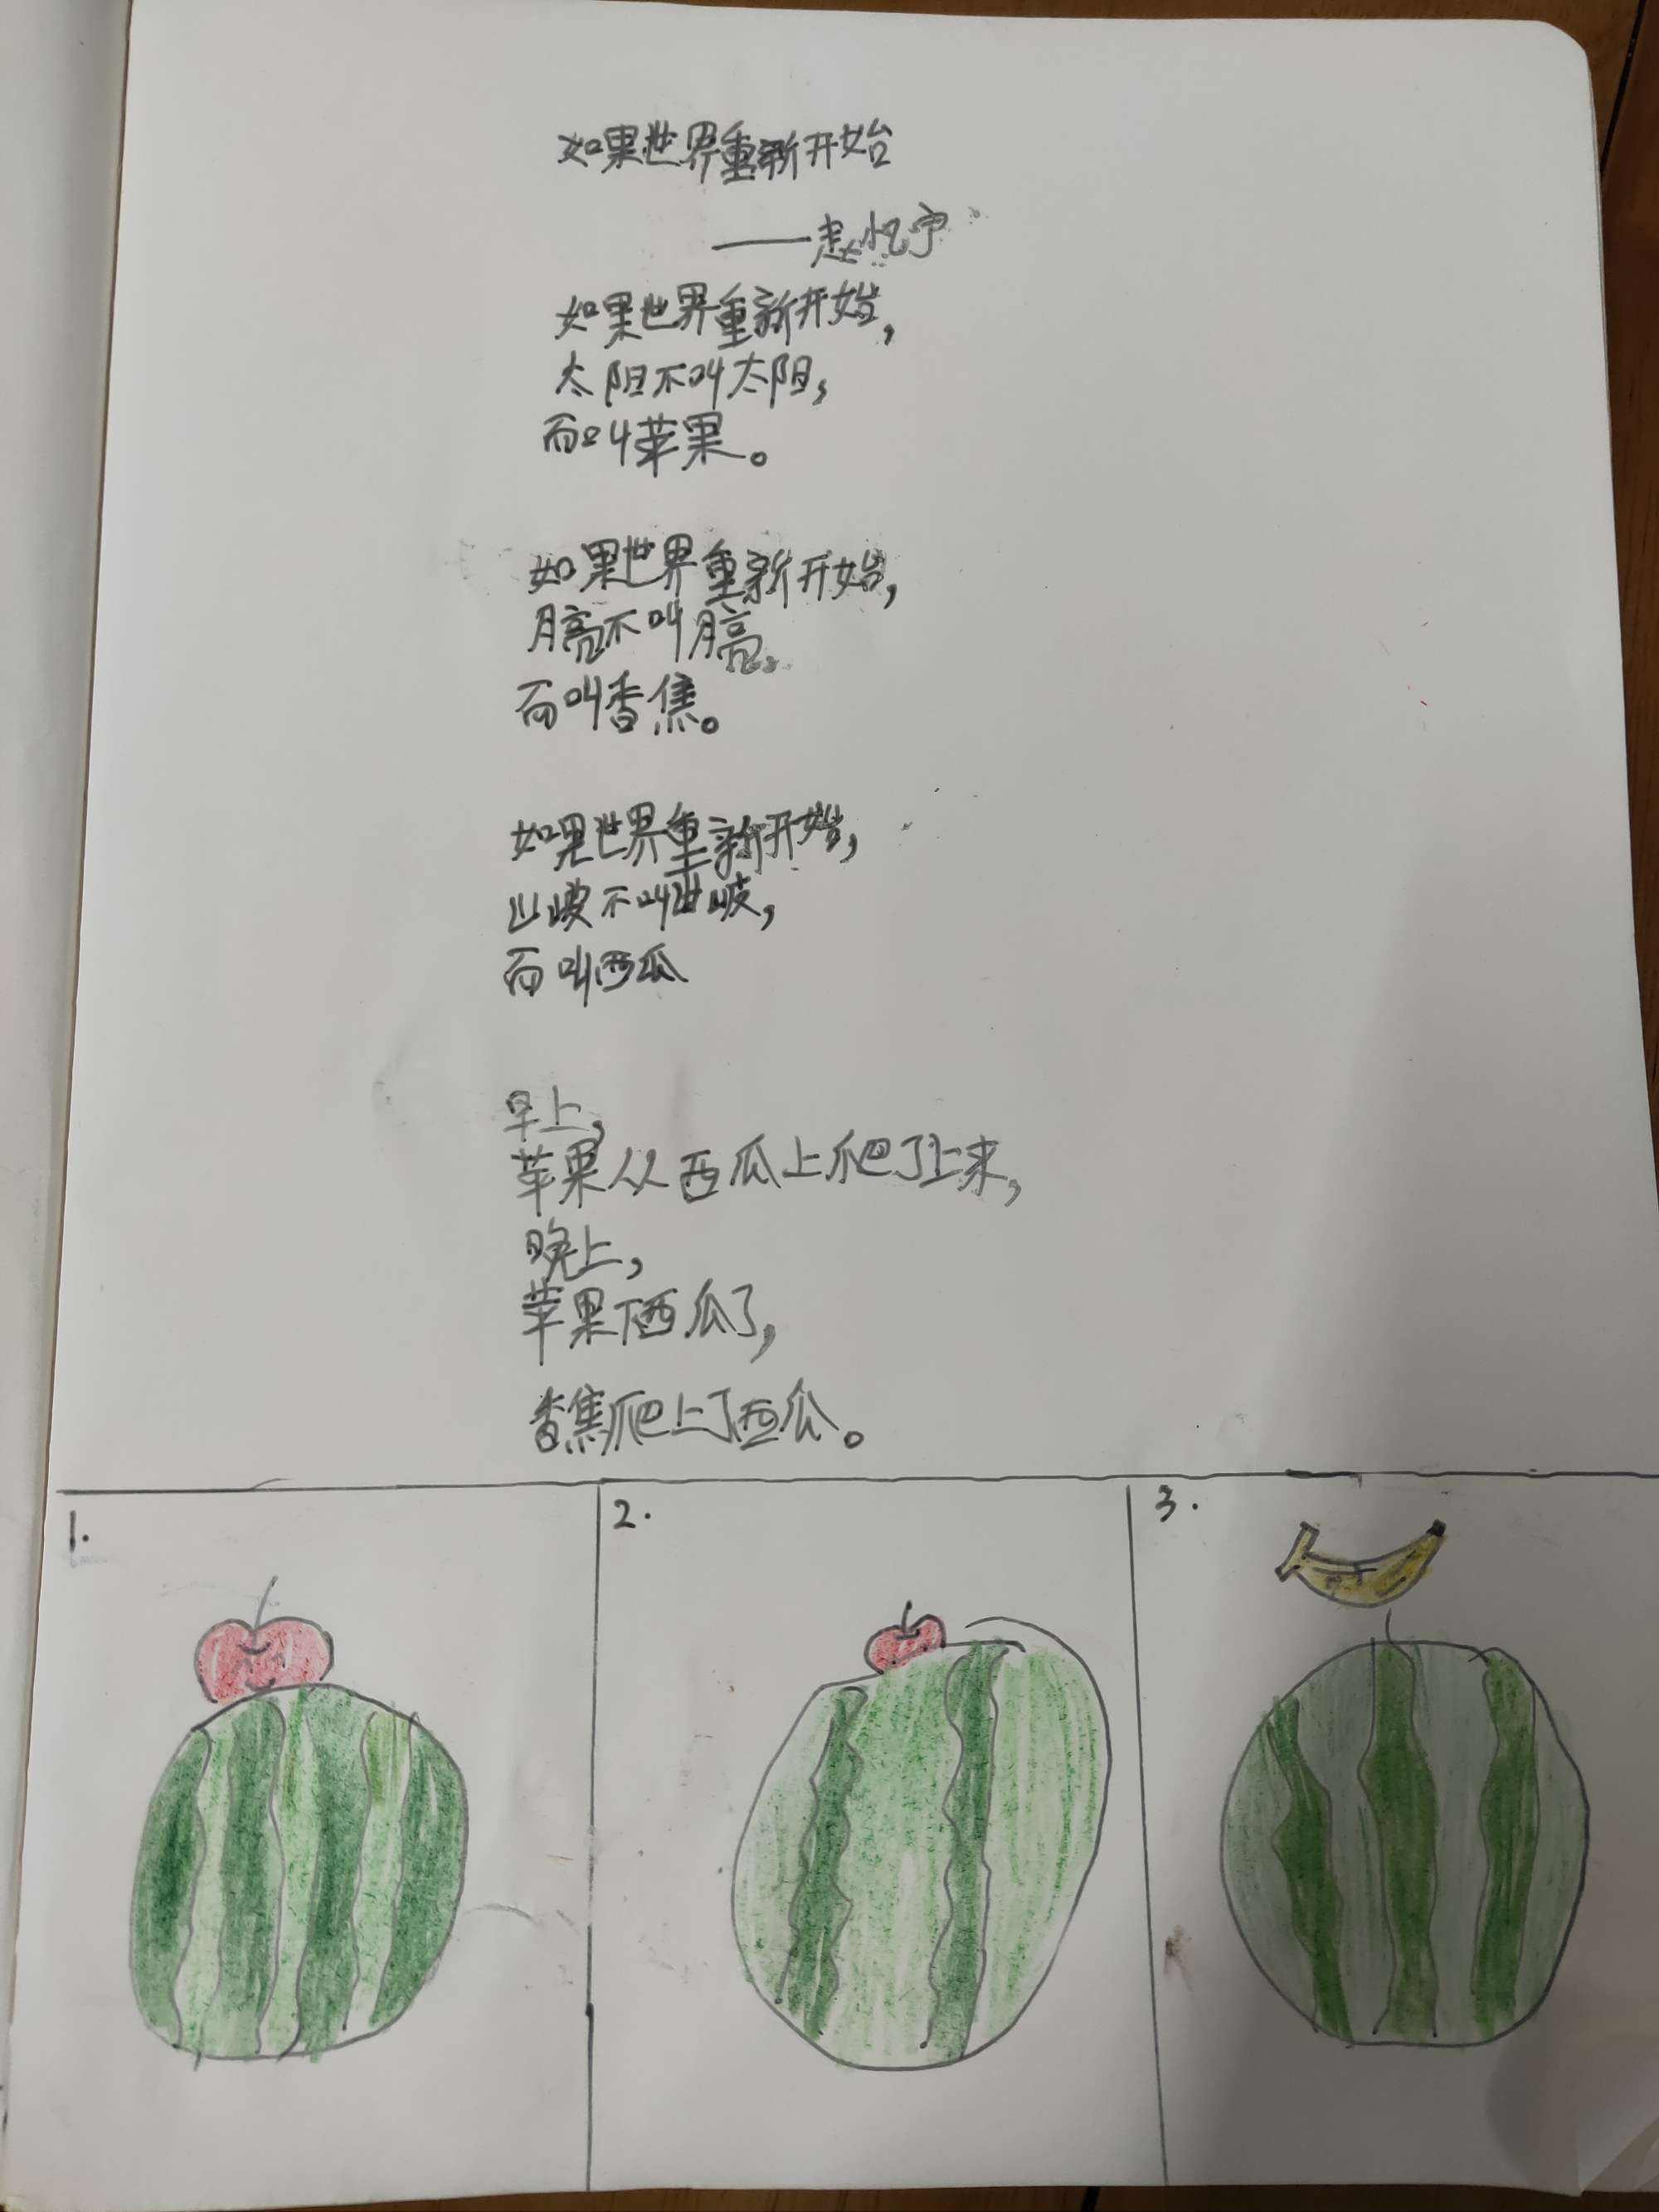 如果世界重新开始
——赵忆宁
如果世界重新开始,
太阳不叫太阳,
而叫苹果。
如果世界重新开始,
月亮不叫月亮,
而叫香焦。
如果世界重新开始,
山坡不叫山坡,
而叫西瓜
早上,
苹果从西瓜上爬了上来,
晚上,
苹果下西瓜了,
香焦爬上了西瓜。
1.
2.
3.